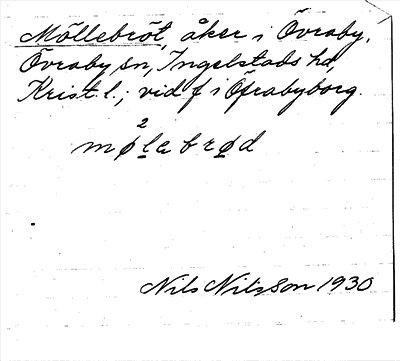 Möllebröt, åker i Övraby,
Övraby sn, Ingelstads hd,
Krist. l.; vid f i Öfrabyborg.
2
møl̲a brø̲d
Nils Nilsson 1930